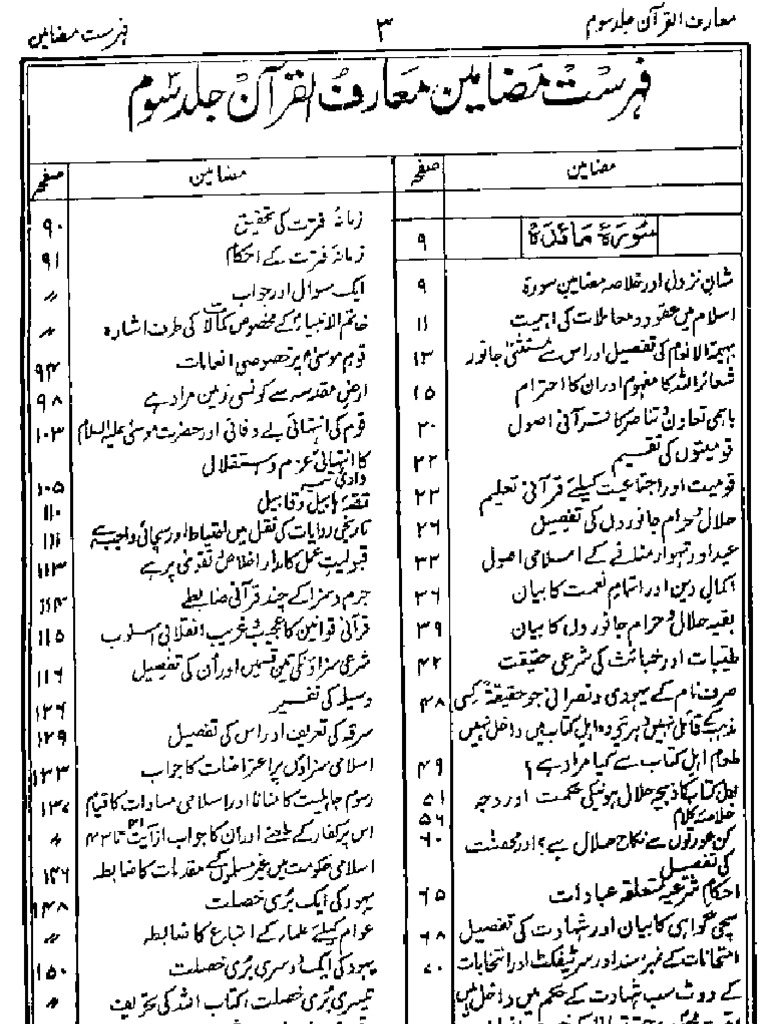 معارف القرآن جلد سوم
۳
فہرست مضامین
فہرست مضامین معارف القرآن جلد سوم
مضامین
صفحہ
سورۂ مائدہ
۹
شانِ نزول اور خلاصہ مضامین سورۃ
۹
اسلام میں عقود و معاملات کی اہمیت
۱۱
بہیمۃ الانعام کی تفصیل اور اس سے مستثنیٰ جانور
۱۳
شعائر اللہ کا مفہوم اور ان کا احترام
۱۵
باہمی تعاون و تناصر کا قرآنی اصول
۲۰
قومیتوں کی تقسیم
۲۲
قومیت اور اجتماعیت کیلئے قرآنی تعلیم
۲۳
حلال و حرام جانوروں کی تفصیل
۲۶
عید اور تہوار منانے کے اسلامی اصول
۳۳
اکمالِ دین اور اتمامِ نعمت کا بیان
۳۶
بقیہ حلال و حرام جانوروں کا بیان
۳۹
طیبات اور خبائث کی شرعی حقیقت
۴۲
صرف نام کے یہودی و نصرانی جو حقیقۃً کسی
۴۸
مذہب کے قائل نہیں دہریے وہ اہلِ کتاب میں داخل نہیں
طعام اہل کتاب سے کیا مراد ہے؟
۴۹
اہل کتاب کا ذبیحہ حلال ہونیکی حکمت اور وجہ
۵۱
خلاصہ کلام
۵۶
کن عورتوں سے نکاح حلال ہے؟ اور محصنٰت
۶۰
کی تفصیل
احکام شرعیہ متعلقہ عبادات
۶۵
سچی گواہی کا بیان اور شہادت کی تفصیل
۶۸
امتحانات کے نمبر سند اور سرٹیفکٹ اور انتخابات
۷۰
کے ووٹ سب شہادت کے حکم میں داخل ہیں
مضامین
صفحہ
زمانۂ فترت کی تحقیق
۹۰
زمانۂ فترت کے احکام
۹۱
ایک سوال اور جواب
〃
خاتم الانبیاء کے مخصوص کمالات کی طرف اشارہ
〃
قوم موسیٰ پر خصوصی انعامات
۹۴
ارض مقدسہ سے کونسی زمین مراد ہے
۹۸
قوم کی انتہائی بے وفائی اور حضرت موسیٰ علیہ السلام
۱۰۳
کا انتہائی عزم و استقلال
وادی تیہ
۱۰۵
قصہ ہابیل و قابیل
۱۱۰
تاریخی روایات کی نقل میں احتیاط اور سچائی واجب ہے
۱۱۱
قبولیت عمل کا مدار اخلاص و تقویٰ پر ہے
۱۱۳
جرم و سزا کے چند قرآنی ضابطے
۱۱۴
قرآنی قوانین کا عجیب و غریب انقلابی اسلوب
۱۱۵
شرعی سزاؤں کی تین قسمیں اور ان کی تفصیل
۱۱۶
وسیلہ کی تفسیر
۱۲۶
سرقہ کی تعریف اور اس کی تفصیل
۱۲۹
اسلامی سزاؤں پر اعتراضات کا جواب
۱۳۳
رسوم جاہلیت کا مٹانا اور اسلامی مساوات کا قیام
اس پر کفار کے طعنے اور ان کا جواب از آیت ۴۱ تا ۴۳
〃
اسلامی حکومت میں غیر مسلموں کے مقدمات کا ضابطہ
۱۴۶
یہود کی ایک بری خصلت
۱۴۸
عوام کیلئے علماء کے اتباع کا ضابطہ
〃
یہود کی ایک دوسری بری خصلت
۱۵۰
تیسری بری خصلت، کتاب اللہ کی تحریف
〃